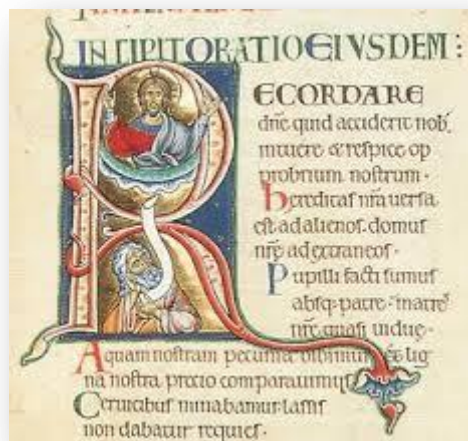 INCIPIT ORATIO EIUSDEM:
RECORDARE
dñe quid acciderit nob.
intuere & respice op
probrium nostrum.
Hereditas nr̃a uersa
est ad alienos. domus
nr̃e ad extraneos.
Pupilli facti sumus
absq; patre. matres
nr̃e quasi uidue.
Aquam nostram pecunia bibimus. & lig
na nostra precio comparauimus.
Ceruicibus minabamur. lassis
non dabatur requies.